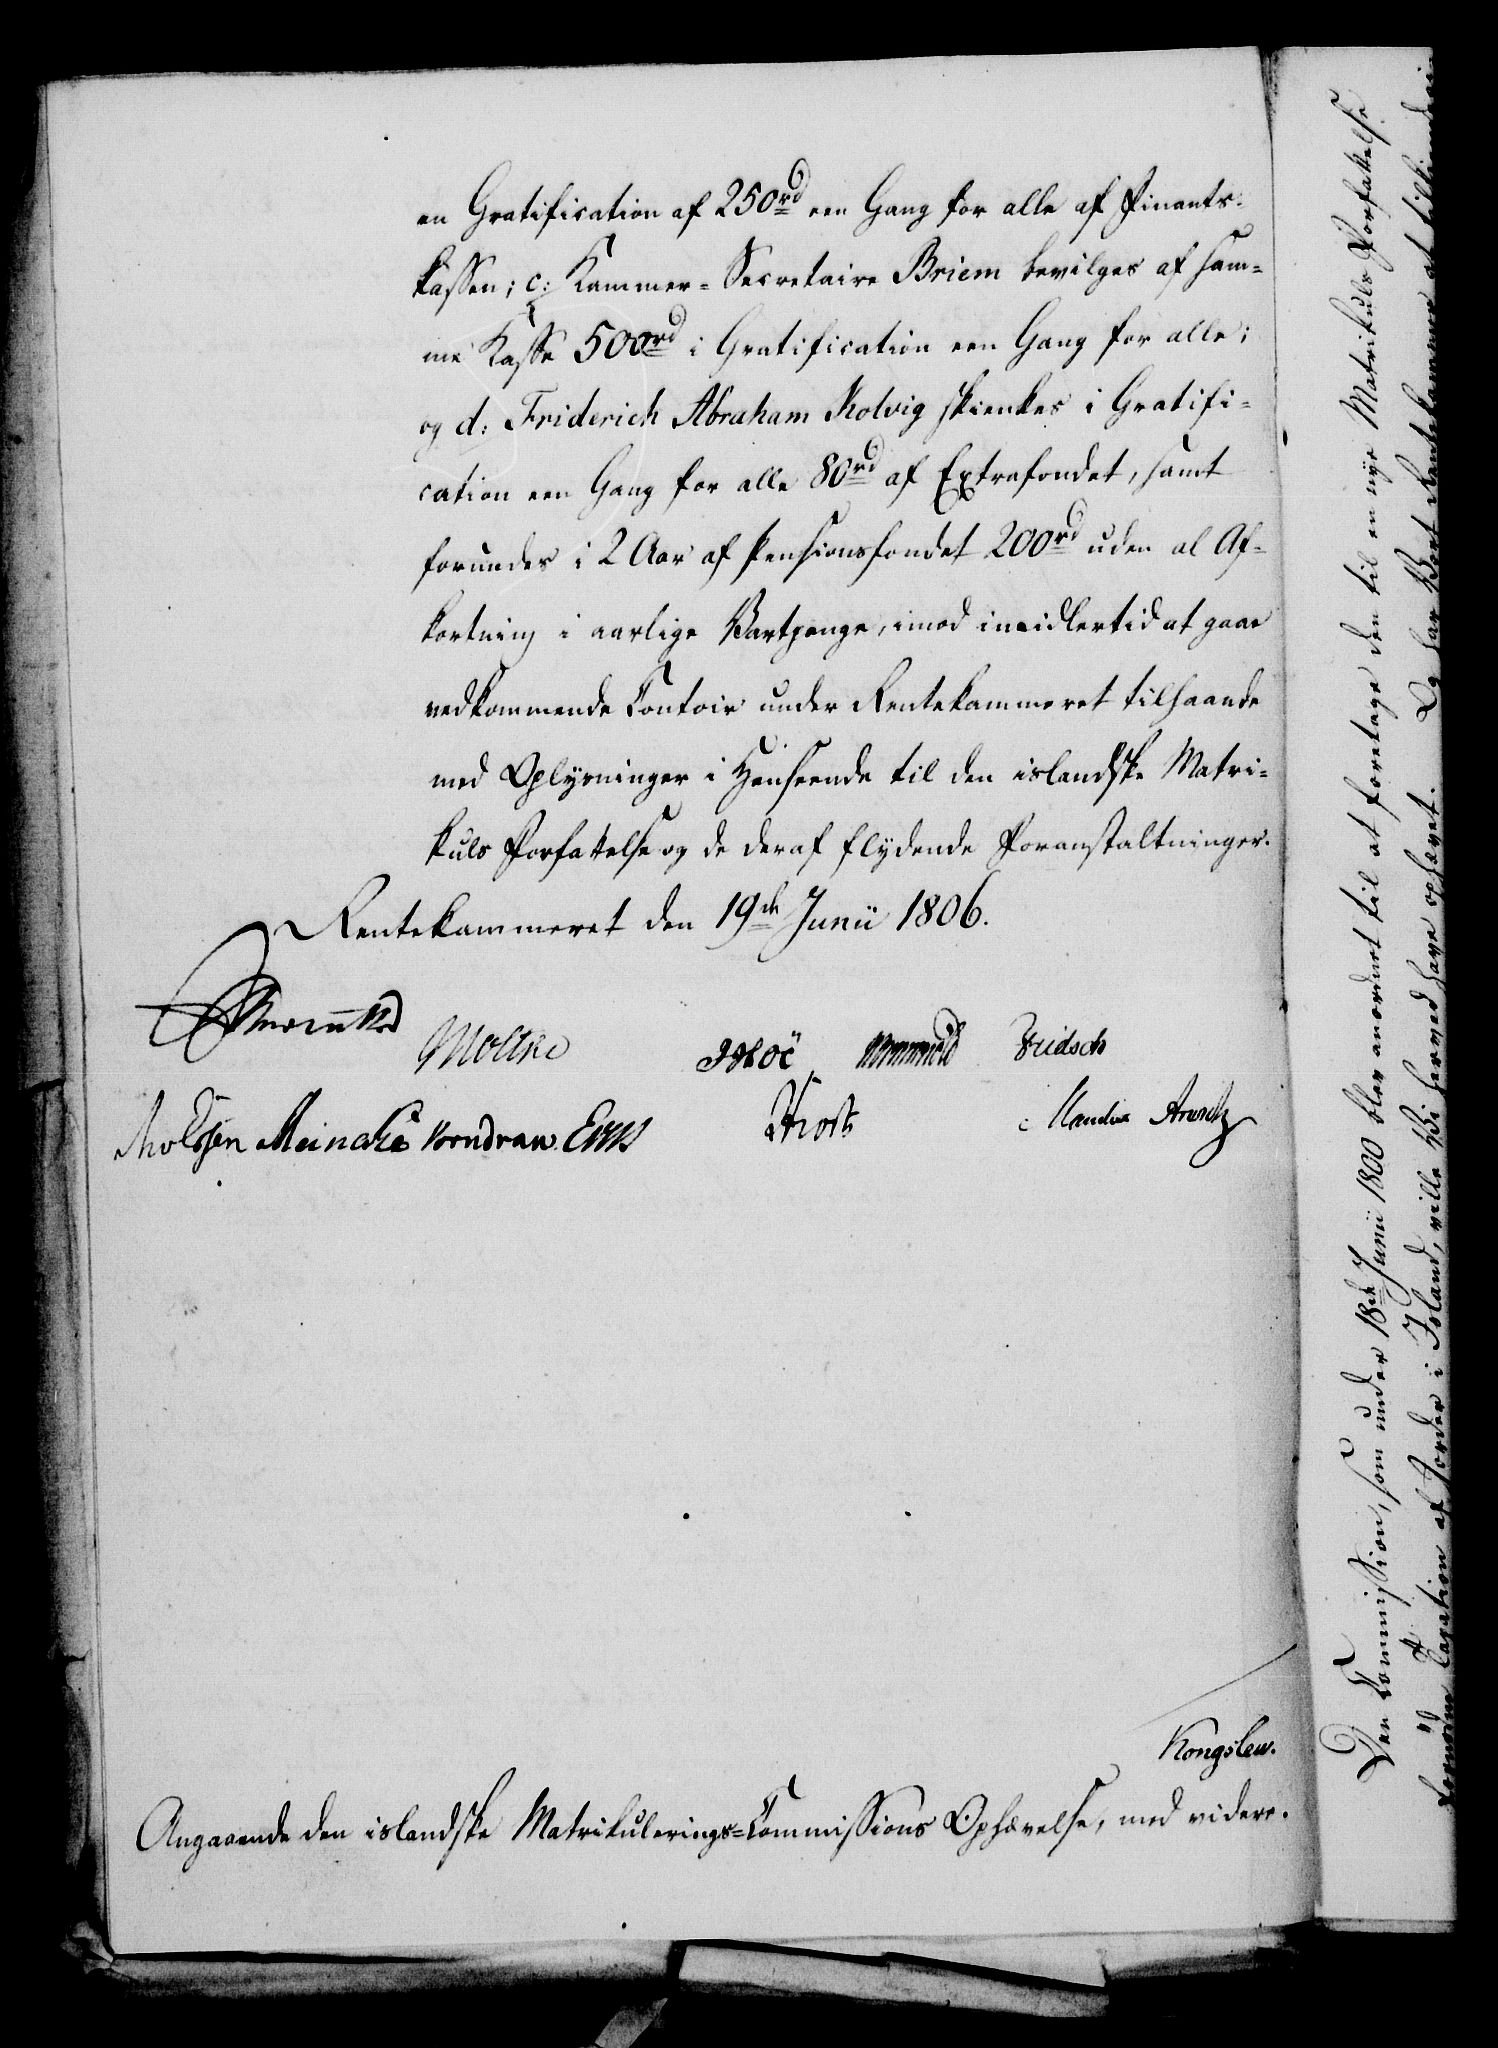 en Gratification af 250rd een Gang for alle af Finants-
kassen; c: Kammer-Secretaire Briem bevilges af sam-
me Kasse 500rd i Gratification een Gang for alle;
og d: Friderich Abraham Kolvig skienkes i Gratifi-
cation een Gang for alle 80rd af Extrafondet, samt
forundes i 2 Aar af Pensionsfondet 200rd uden al Af-
kortning i aarlige Vartpenge, imod imidlertid at gaae
vedkommende Contoir under Rentekammeret tilhaande
med Oplysninger i Henseende til den islandske Matri-
kuls Forfattelse og de deraf flydende Foranstaltninger.
Rentekammeret den 19de Junii 1806.
Moltke
Meincke Wendran
Arentz
Kongslew.
Angaaende den islandske Matrikulerings-Commissions Ophævelse, med videre.
Den Commission, som under 18de Junii 1800 blev anordnet til at foretage den til en nye Matrikuls Forfattelse
fornøden Taxation af Jorder i Island, ville Vi herved have ophævet. Og har Vort Rentekammer at tilkiendegi